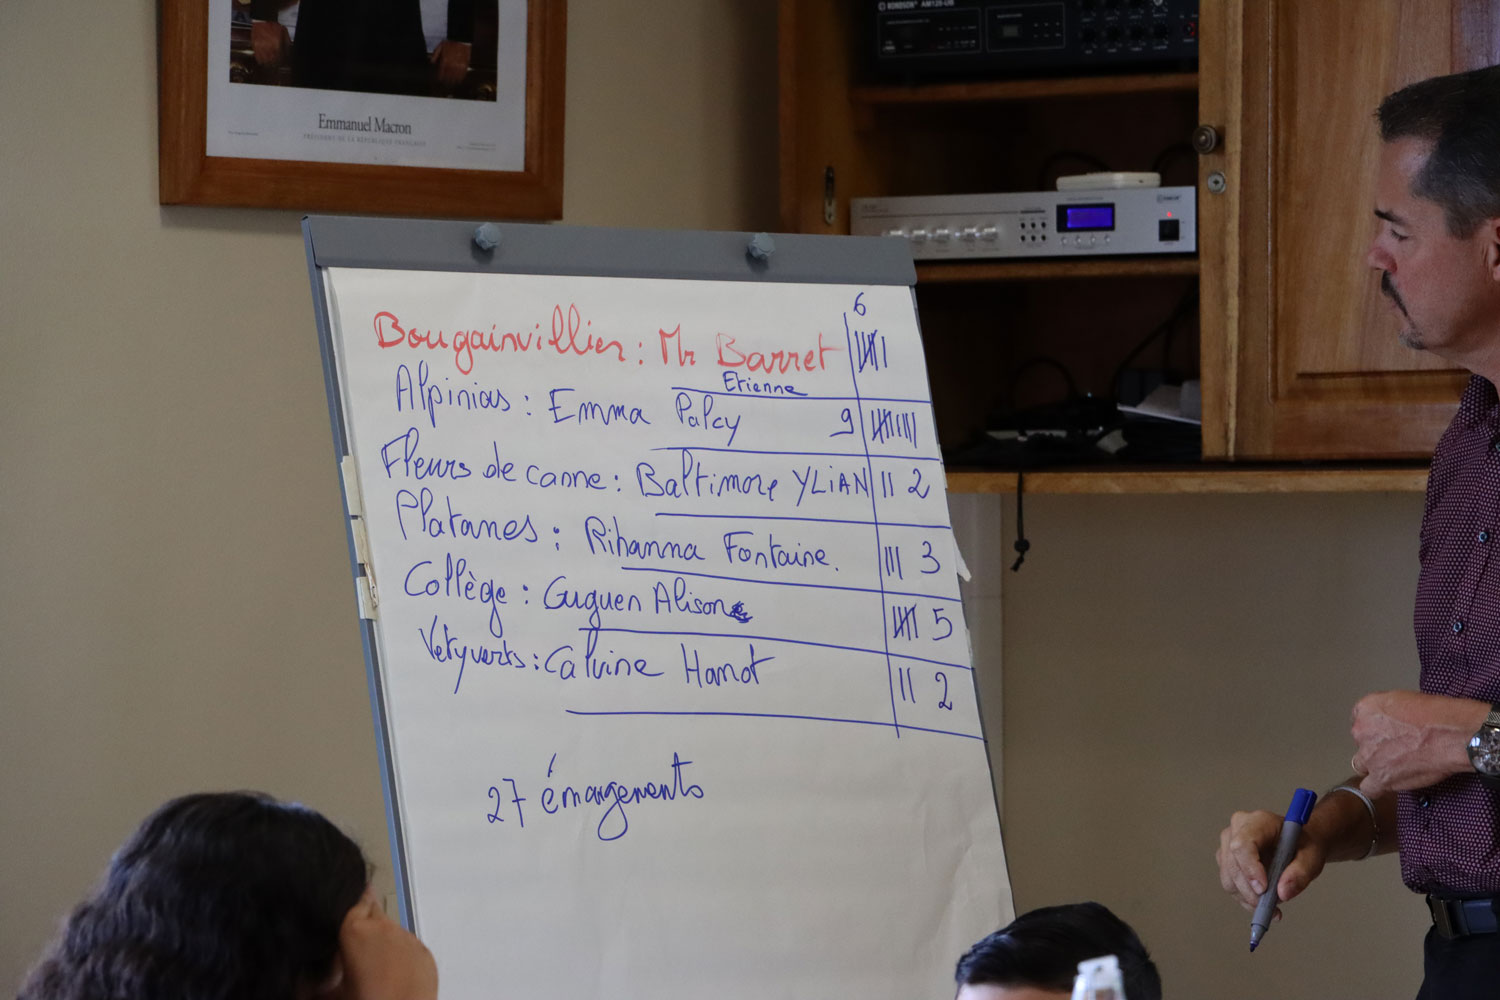 RONDSON AM120-UB
Emmanuel Macron
PRÉSIDENT DE LA RÉPUBLIQUE FRANÇAISE
6
Bougainvillier : Mr Barret
Etienne
Alpinias : Emma Palcy 9
Fleurs de canne : Baltimore YLiAN 2
Platanes : Rihanna Fontaine. 3
Collège : Guguen Alison 5
Vetyverts : Calvine Hanot 2
27 émargements